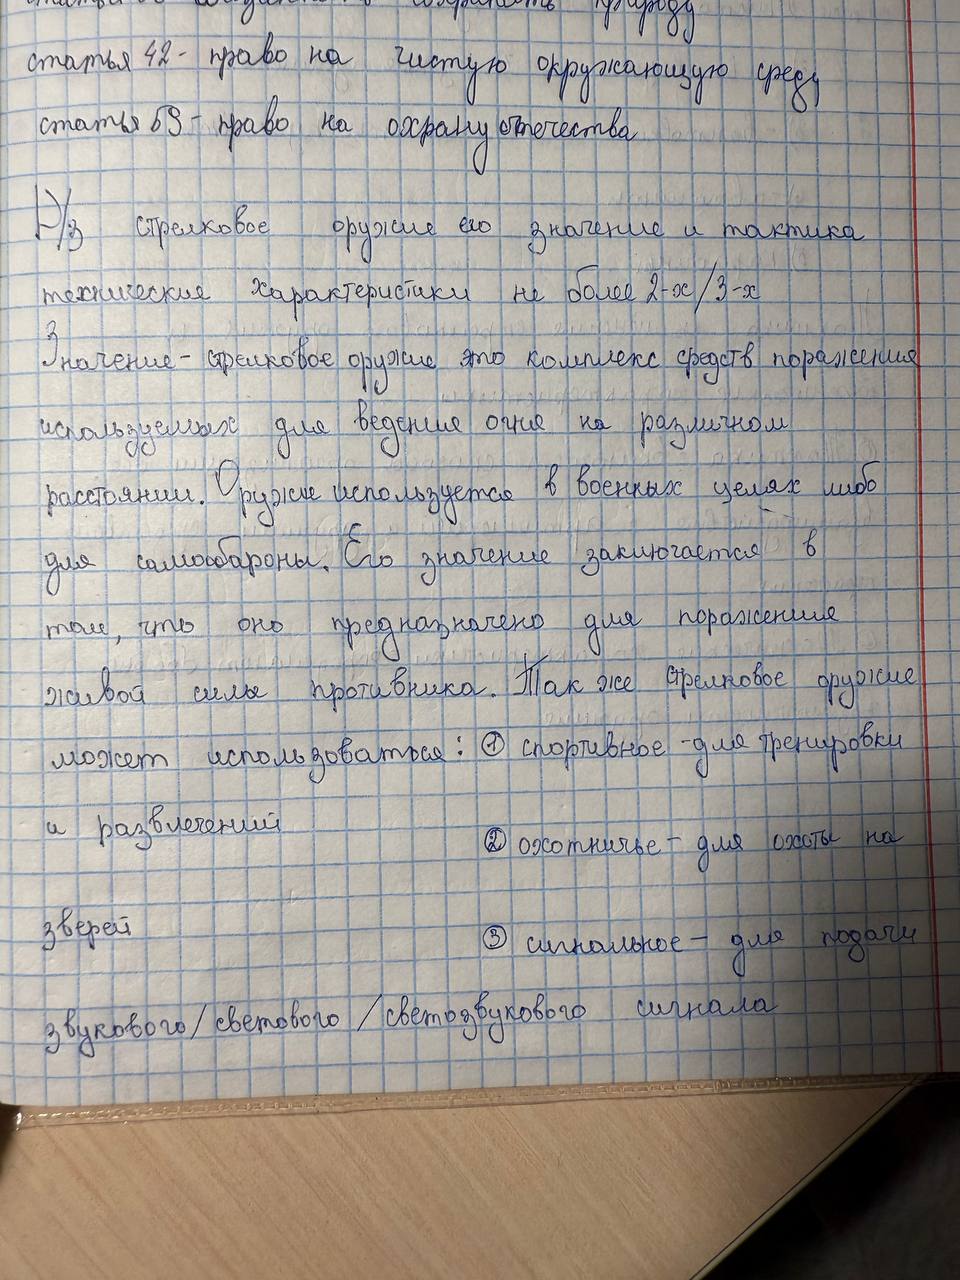 сохранять природу
статья 42 - право на чистую окружающую среду
статья 59 - право на охрану отечества
Д/з стрелковое оружие его значение и тактика
технические характеристики не более 2-х/3-х
Значение - стрелковое оружие это комплекс средств поражения
используемых для ведения огня на различном
расстоянии. Оружие используется в военных целях либо
для самообароны. Его значение заключается в
том, что оно предназначено для поражения
живой силы противника. Так же стрелковое оружие
может использоваться: ① спортивное - для тренировки
и развлечений
② охотничье - для охоты на
зверей
③ сигнальное - для подачи
звукового/светового/светозвукового сигнала